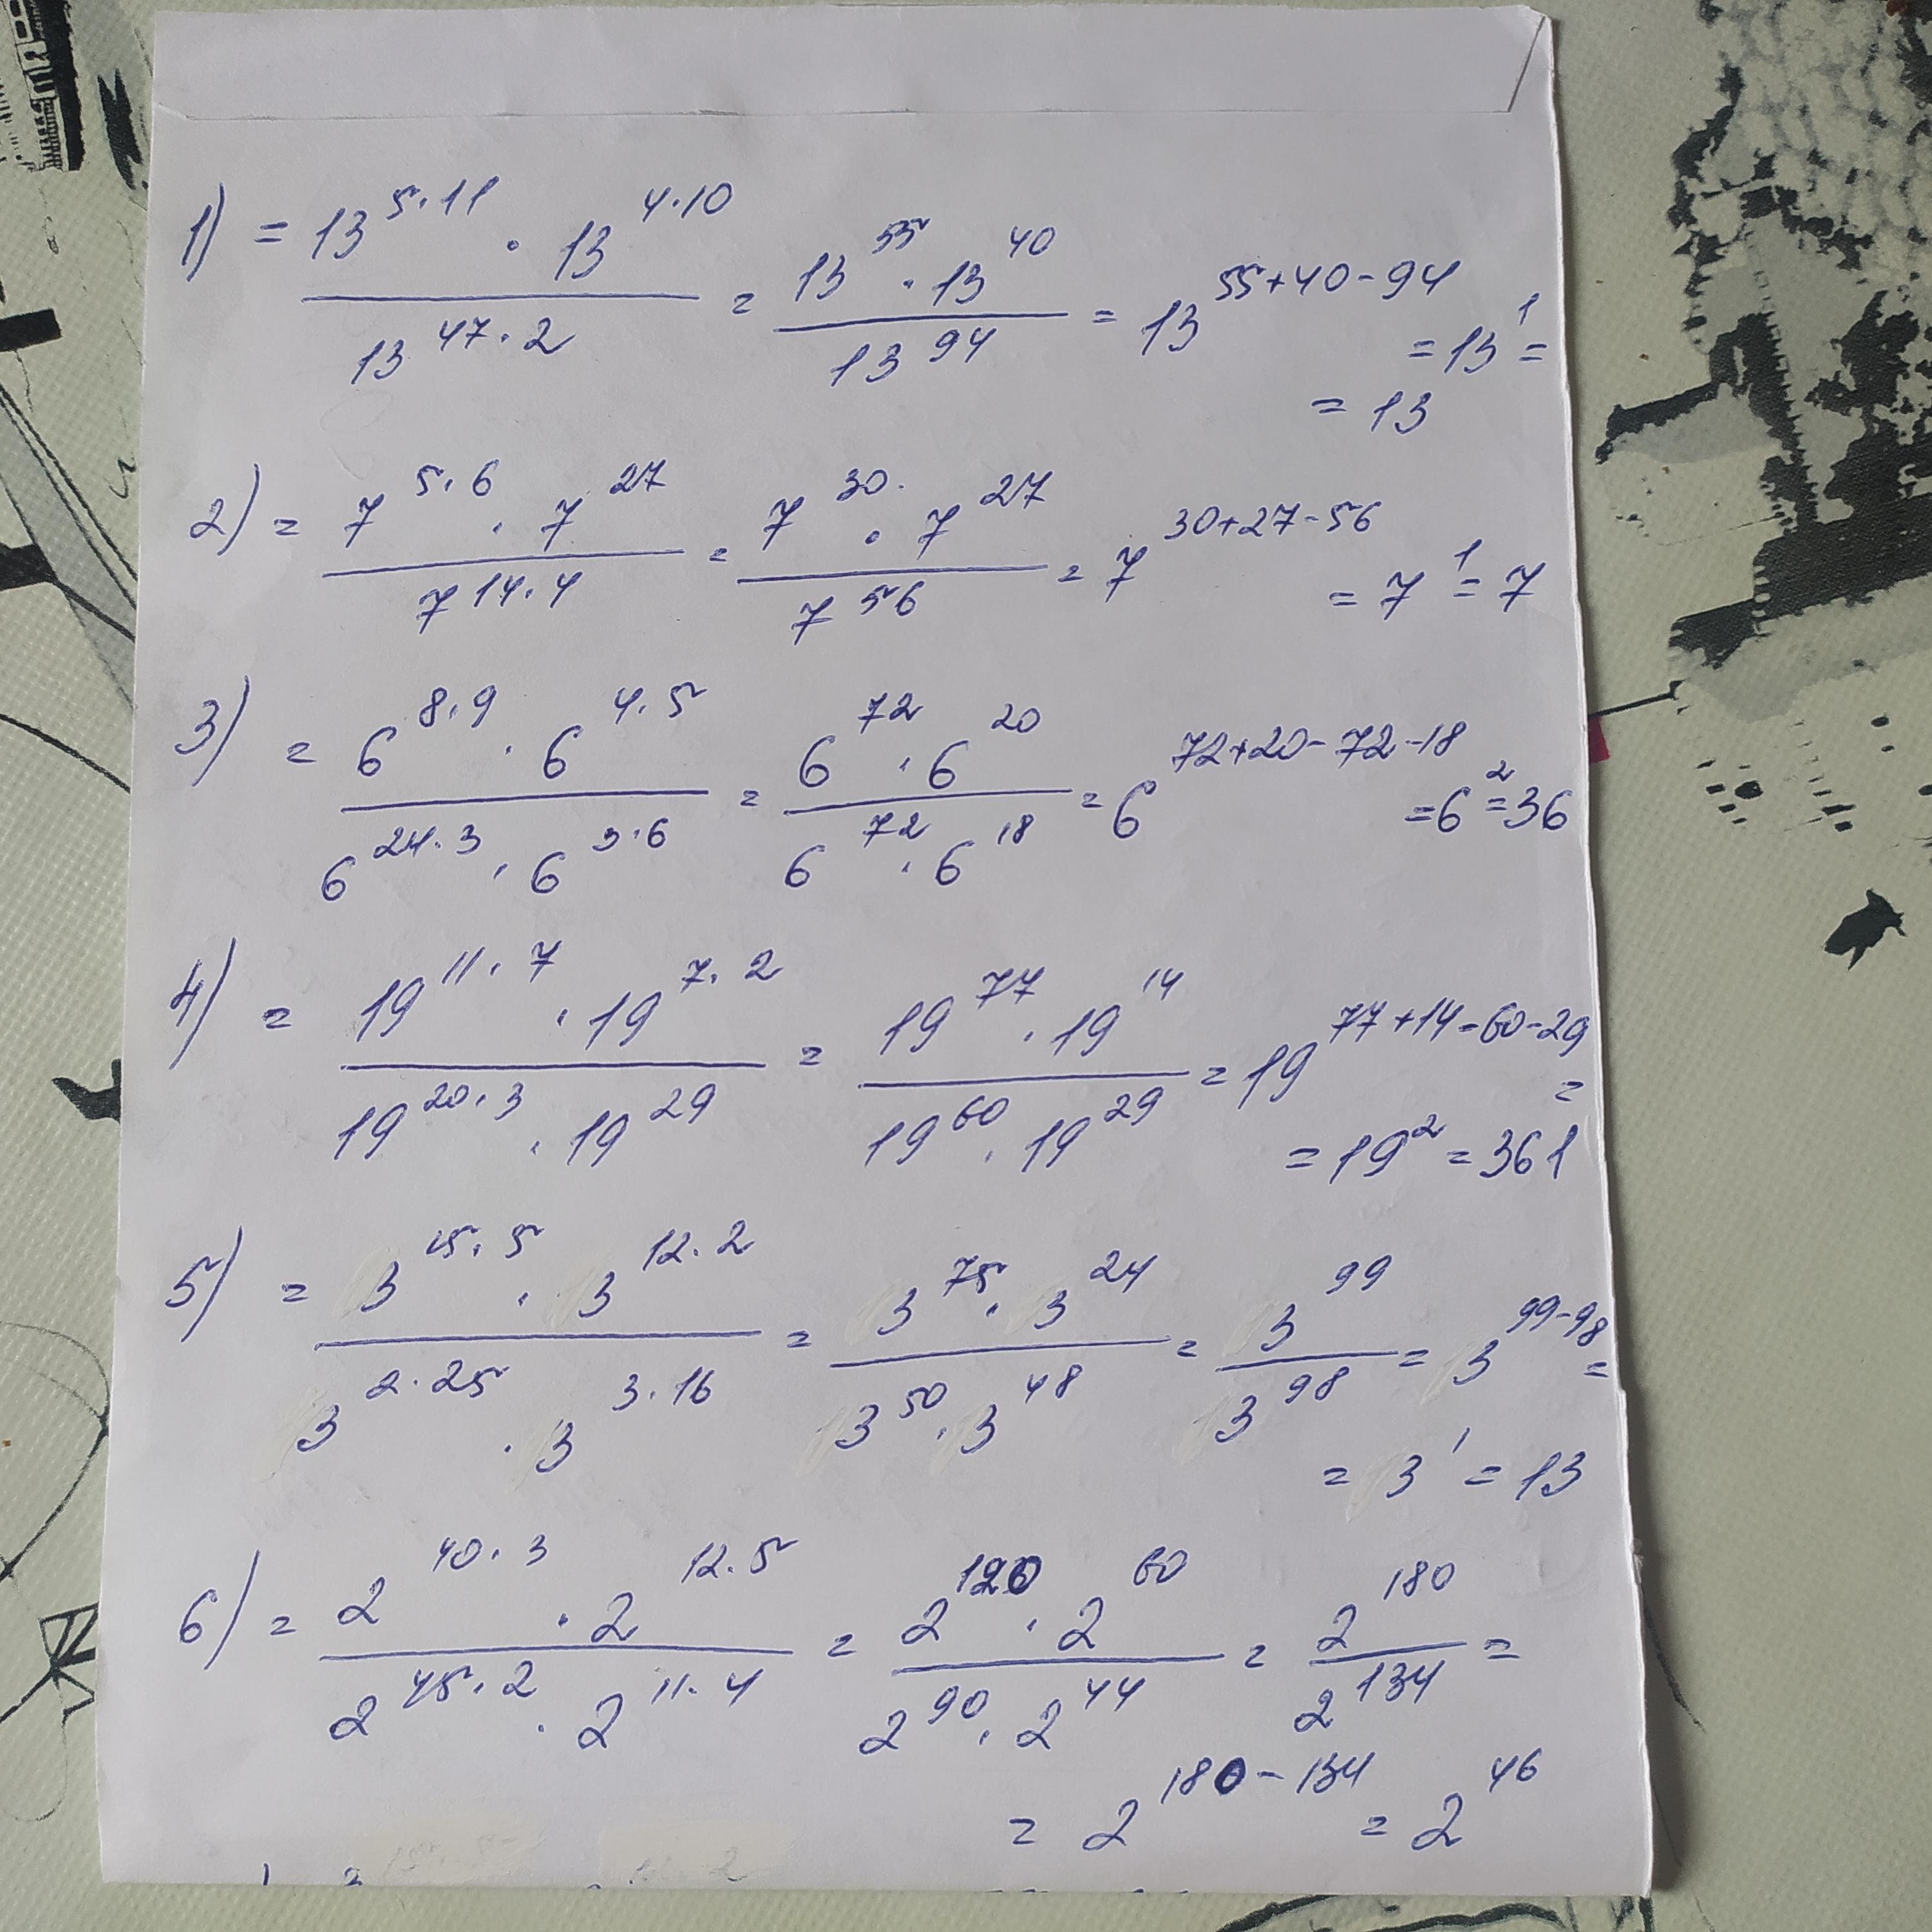 1) = 13^5·11 · 13^4·10 / 13^47·2 = 13^55 · 13^40 / 13^94 = 13^55+40-94
= 13^1 =
= 13
2) = 7^5·6 · 7^27 / 7^14·4 = 7^30 · 7^27 / 7^56 = 7^30+27-56
= 7^1 = 7
3) = 6^8·9 · 6^4·5 / 6^24·3 · 6^3·6 = 6^72 · 6^20 / 6^72 · 6^18 = 6^72+20-72-18
= 6^2 = 36
4) = 19^11·7 · 19^7·2 / 19^20·3 · 19^29 = 19^77 · 19^14 / 19^60 · 19^29 = 19^77+14-60-29 =
= 19^2 = 361
5) = 3^15·5 · 3^12·2 / 3^2·25 · 3^3·16 = 3^75 · 3^24 / 3^50 · 3^48 = 3^99 / 3^98 = 3^99-98 =
= 3^1 = 13
6) = 2^40·3 · 2^12·5 / 2^45·2 · 2^11·4 = 2^120 · 2^60 / 2^90 · 2^44 = 2^180 / 2^134 =
= 2^180-134 = 2^46